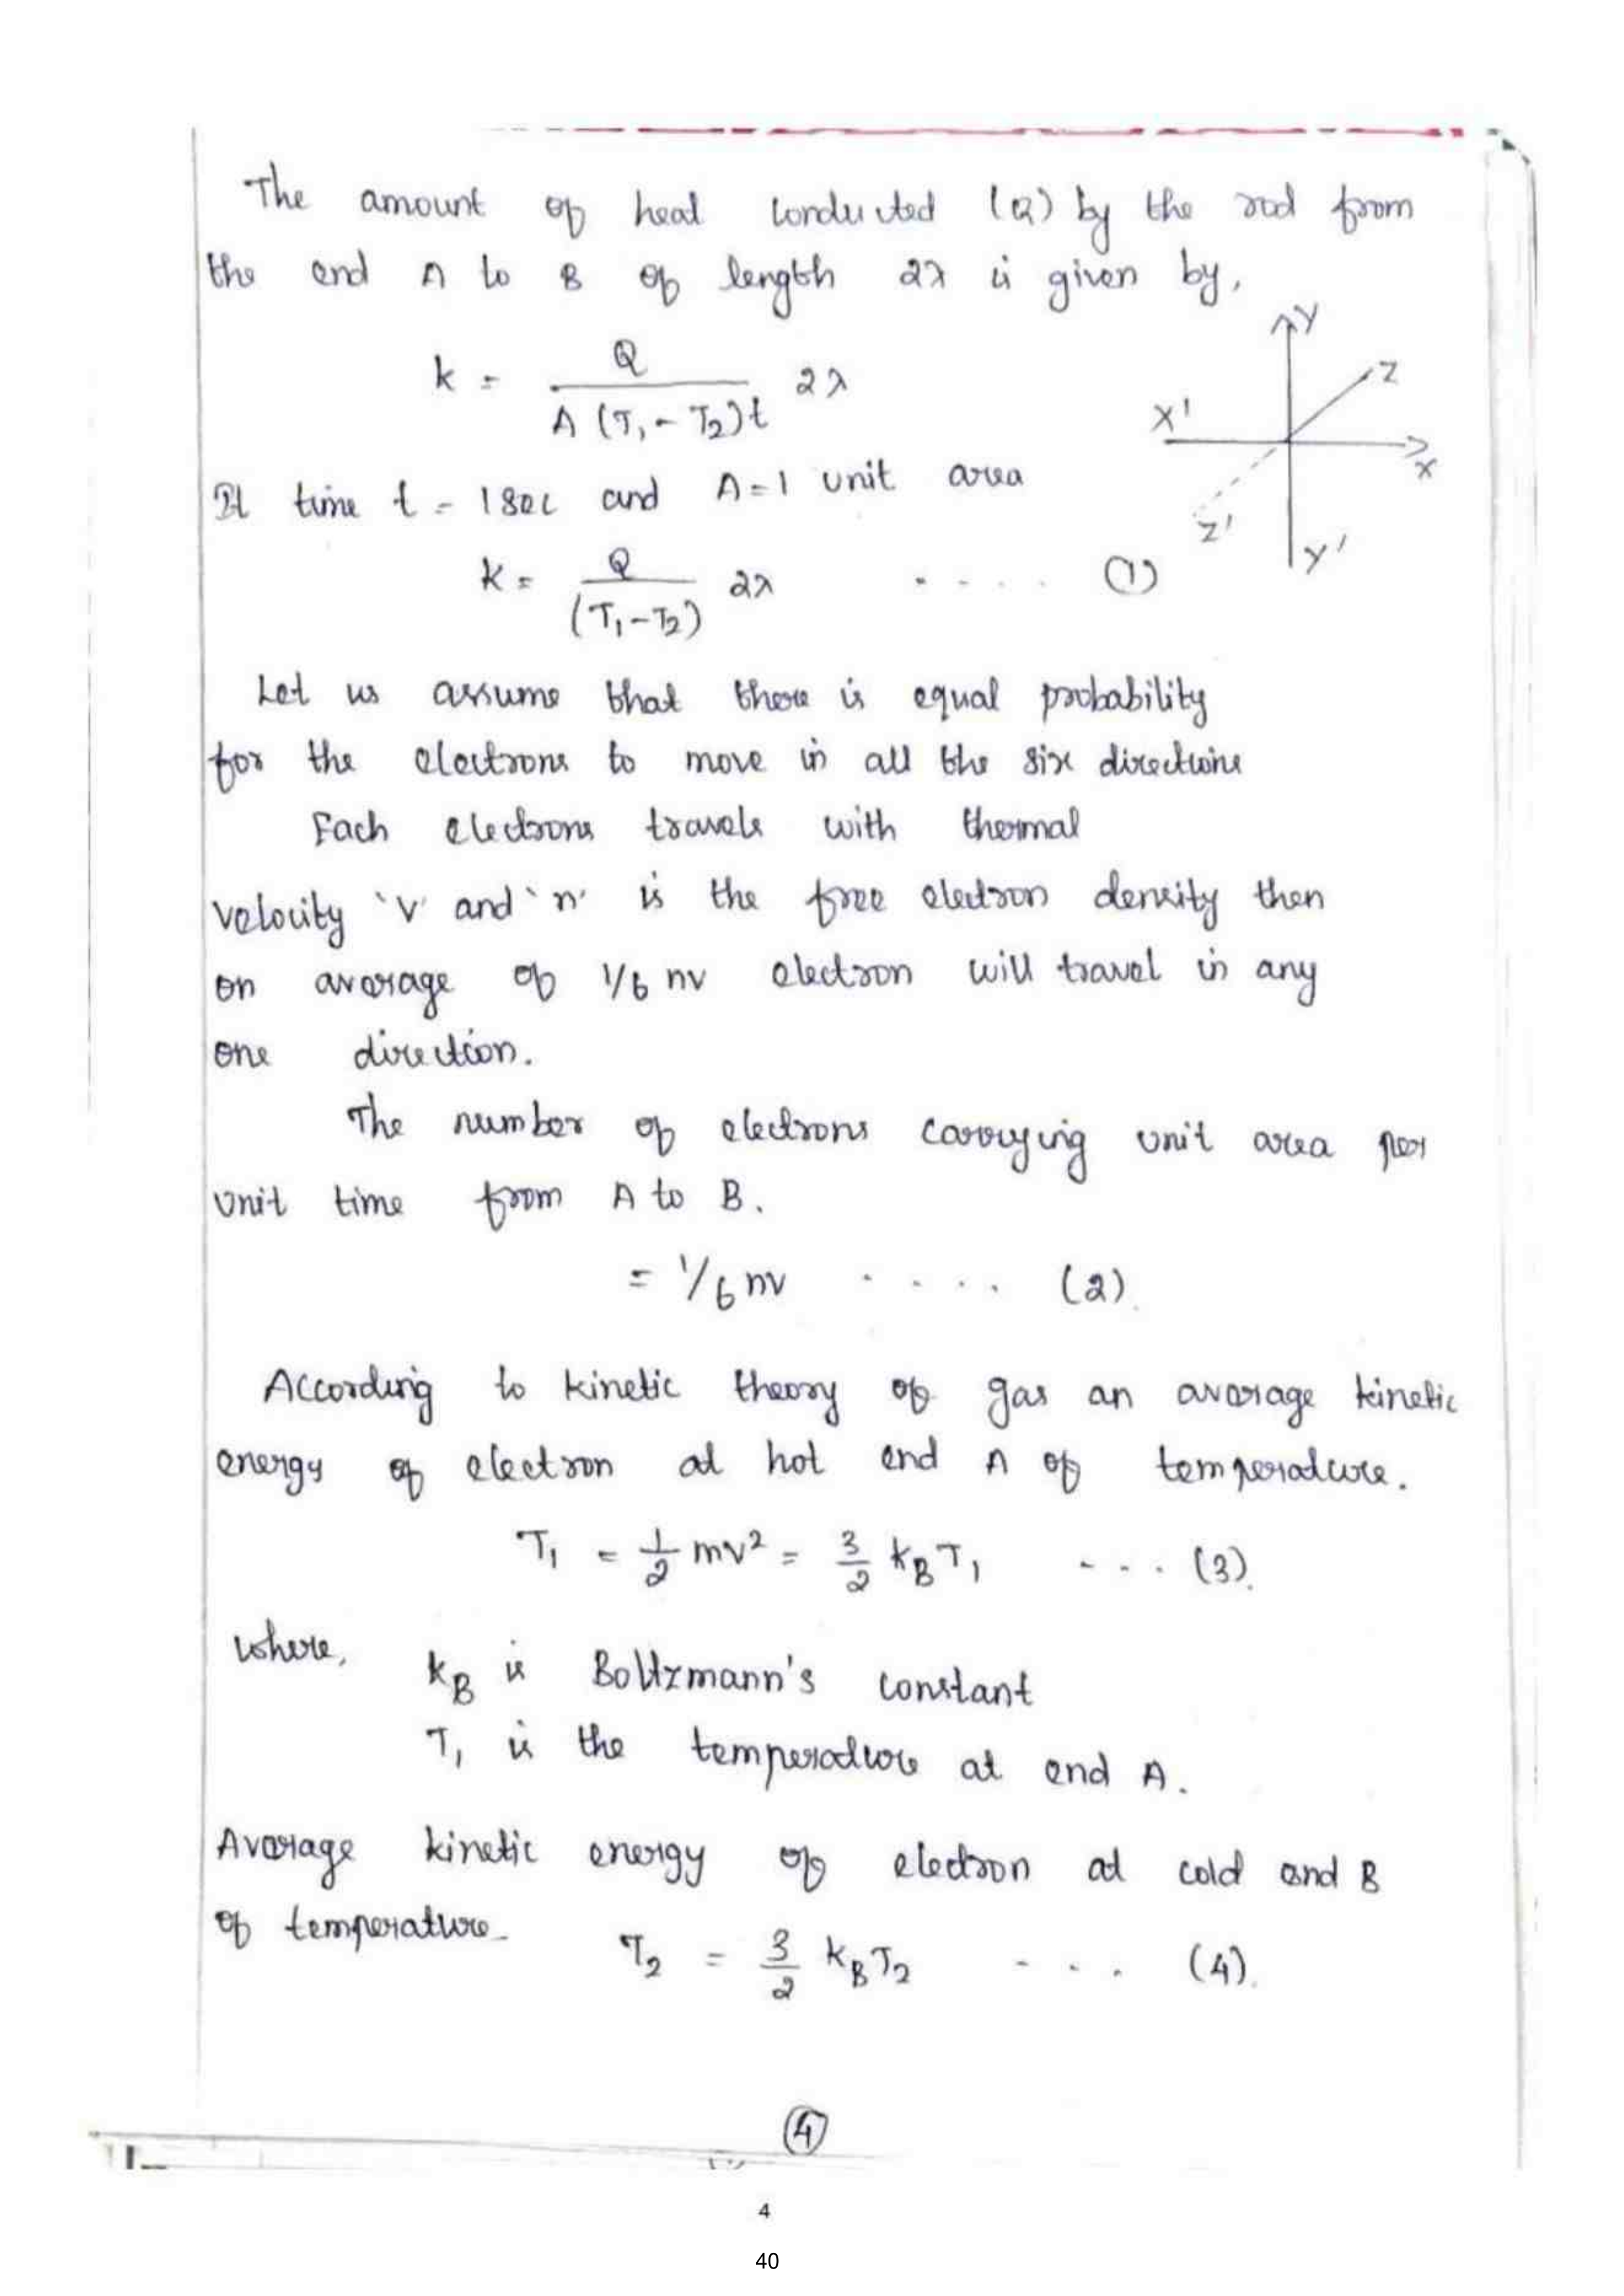 The amount of heat conducted (Q) by the rod from
the end A to B of length 2λ is given by,
k = Q / A (T₁ - T₂)t 2λ
Y
Z
X'
X
Z'
Y'
If time t = 1 sec and A = 1 unit area
k = Q / (T₁ - T₂) 2λ .... (1)
Let us assume that there is equal probability
for the electrons to move in all the six directions
Each electrons travels with thermal
velocity 'v' and 'n' is the free electron density then
on average of 1/6 nv electron will travel in any
one direction.
The number of electrons carrying unit area per
unit time from A to B.
= 1/6 nv .... (2)
According to kinetic theory of gas an average kinetic
energy of electron at hot end A of temperature.
T₁ = 1/2 mv² = 3/2 k_B T₁ ... (3).
where,
k_B is Boltzmann's constant
T₁ is the temperature at end A.
Average kinetic energy of electron at cold end B
of temperature
T₂ = 3/2 k_B T₂ ... (4).
4
4
40